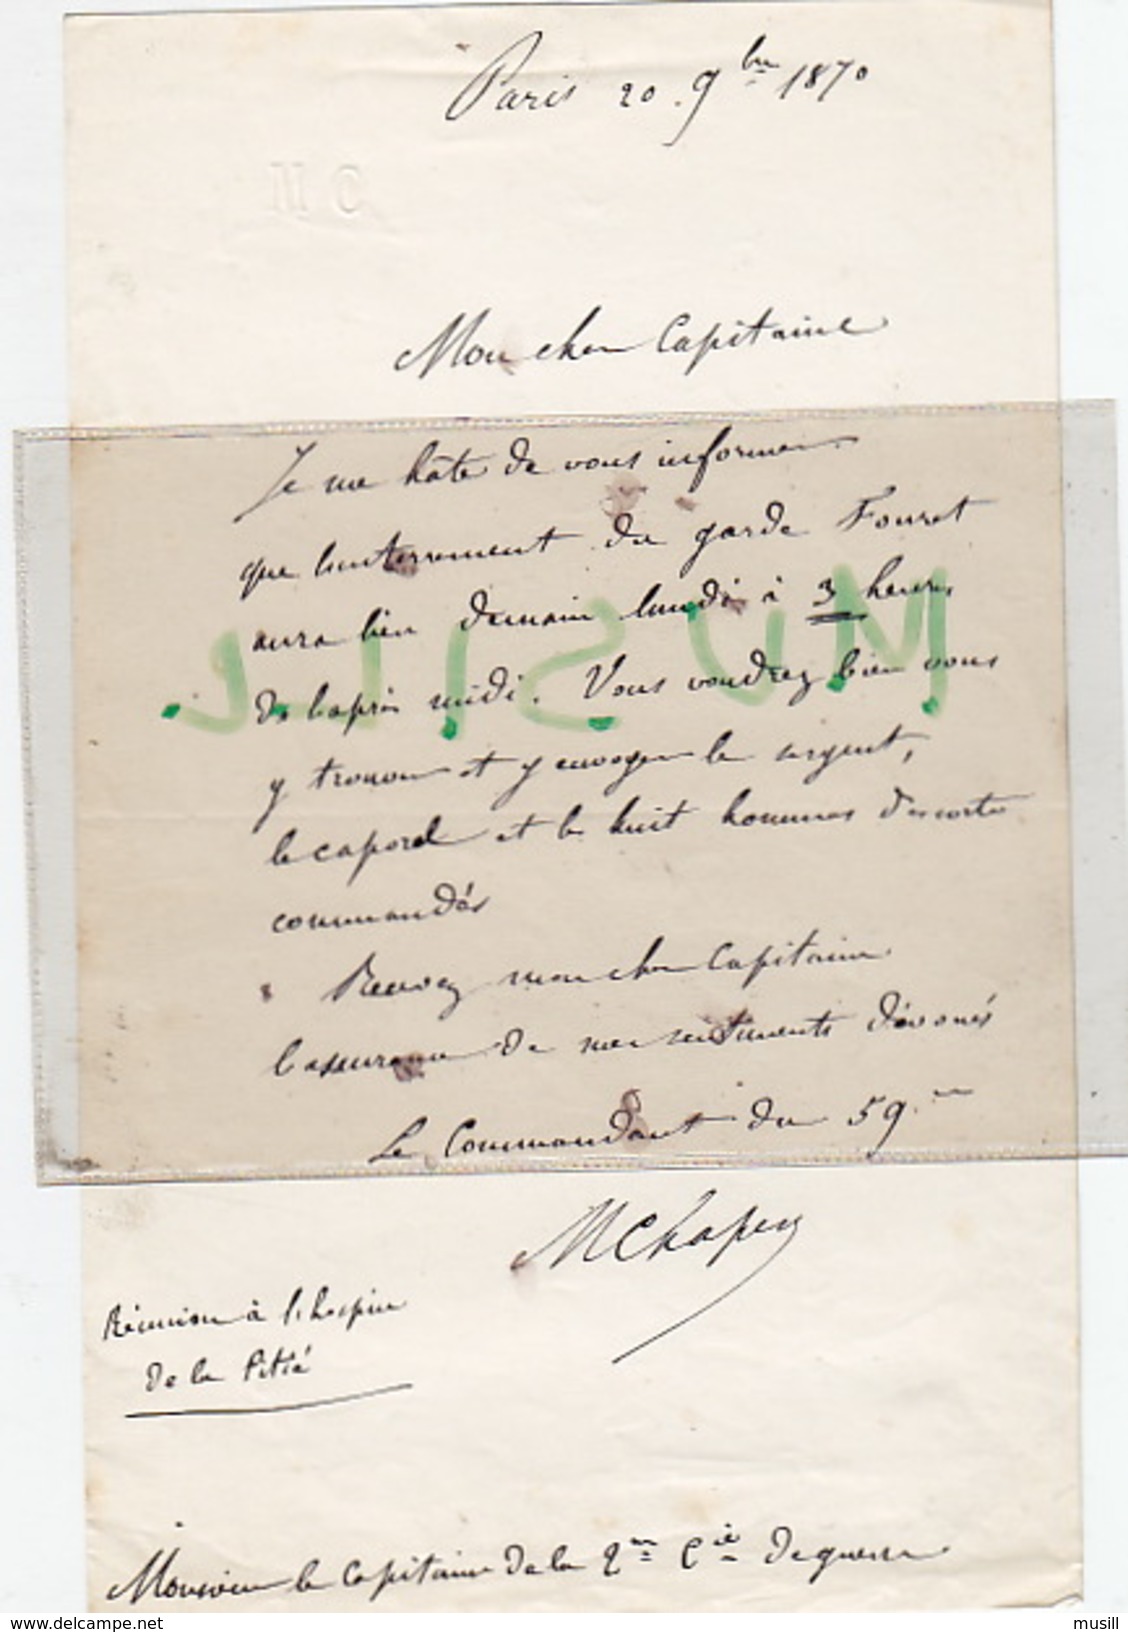 Paris 20 9bre 1870
MC
Mon cher Capitaine
Je me hâte de vous informer
que l'enterrement du garde Fouret
aura lieu demain lundi à 3 heures
de l'après midi. Vous voudrez bien vous
y trouver et y envoyer le sergent,
le caporal et les huit hommes d'escorte
commandés
Recevez mon cher Capitaine
l'assurance de mes sentiments dévoués
Le Commandant du 59me
MChaper
Réunion à l'hospice
de la Pitié
Monsieur le Capitaine de la 2me Cie de guerre
MUSILL
www.delcampe.net
musill